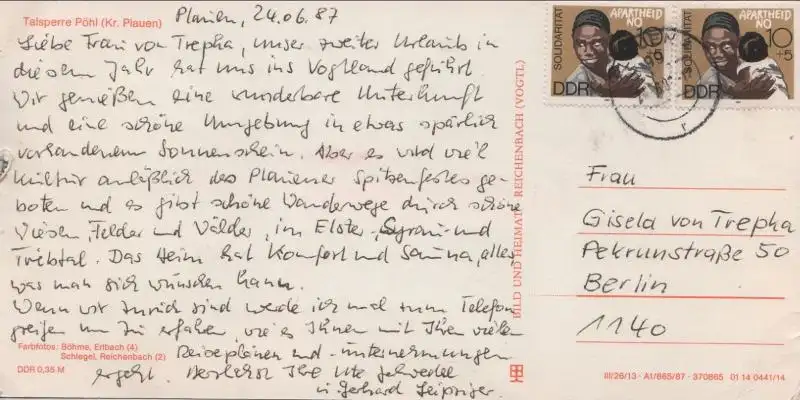 Talsperre Pöhl (Kr. Plauen)
Plauen, 24.06.87
Liebe Frau von Trepha, unser zweiter Urlaub in
diesem Jahr hat uns ins Vogtland geführt
Wir genießen eine wunderbare Unterkunft
und eine schöne Umgebung in etwas spärlich
vorhandenem Sonnenschein. Aber es wird viel
Kultur anläßlich des Plauener Spitzenfestes ge-
boten und es gibt schöne Wanderwege durch schöne
Wiesen, Felder und Wälder, im Elster-, Syrau- und
Triebtal. Das Heim hat Komfort und Sauna, alles,
was man sich wünschen kann.
Wenn wir zurück sind werde ich mal zum Telefon
greifen um zu erfahren, wie es Ihnen mit Ihren vielen
Reiseplänen und -unternehmungen
ergeht. Herzlichst Ihre Ute Schwedel
u. Gerhard Leipziger.
Farbfotos: Böhme, Erlbach (4)
Schlegel, Reichenbach (2)
DDR 0,35 M
BILD UND HEIMAT REICHENBACH (VOGTL)
SOLIDARITÄT
APARTHEID
NO
10
DDR
SOLIDARITÄT
APARTHEID
NO
10
+5
DDR
Frau
Gisela von Trepha
Pekrunstraße 50
Berlin
1140
III/26/13 - A1/865/87 - 370865 01 14 0441/14